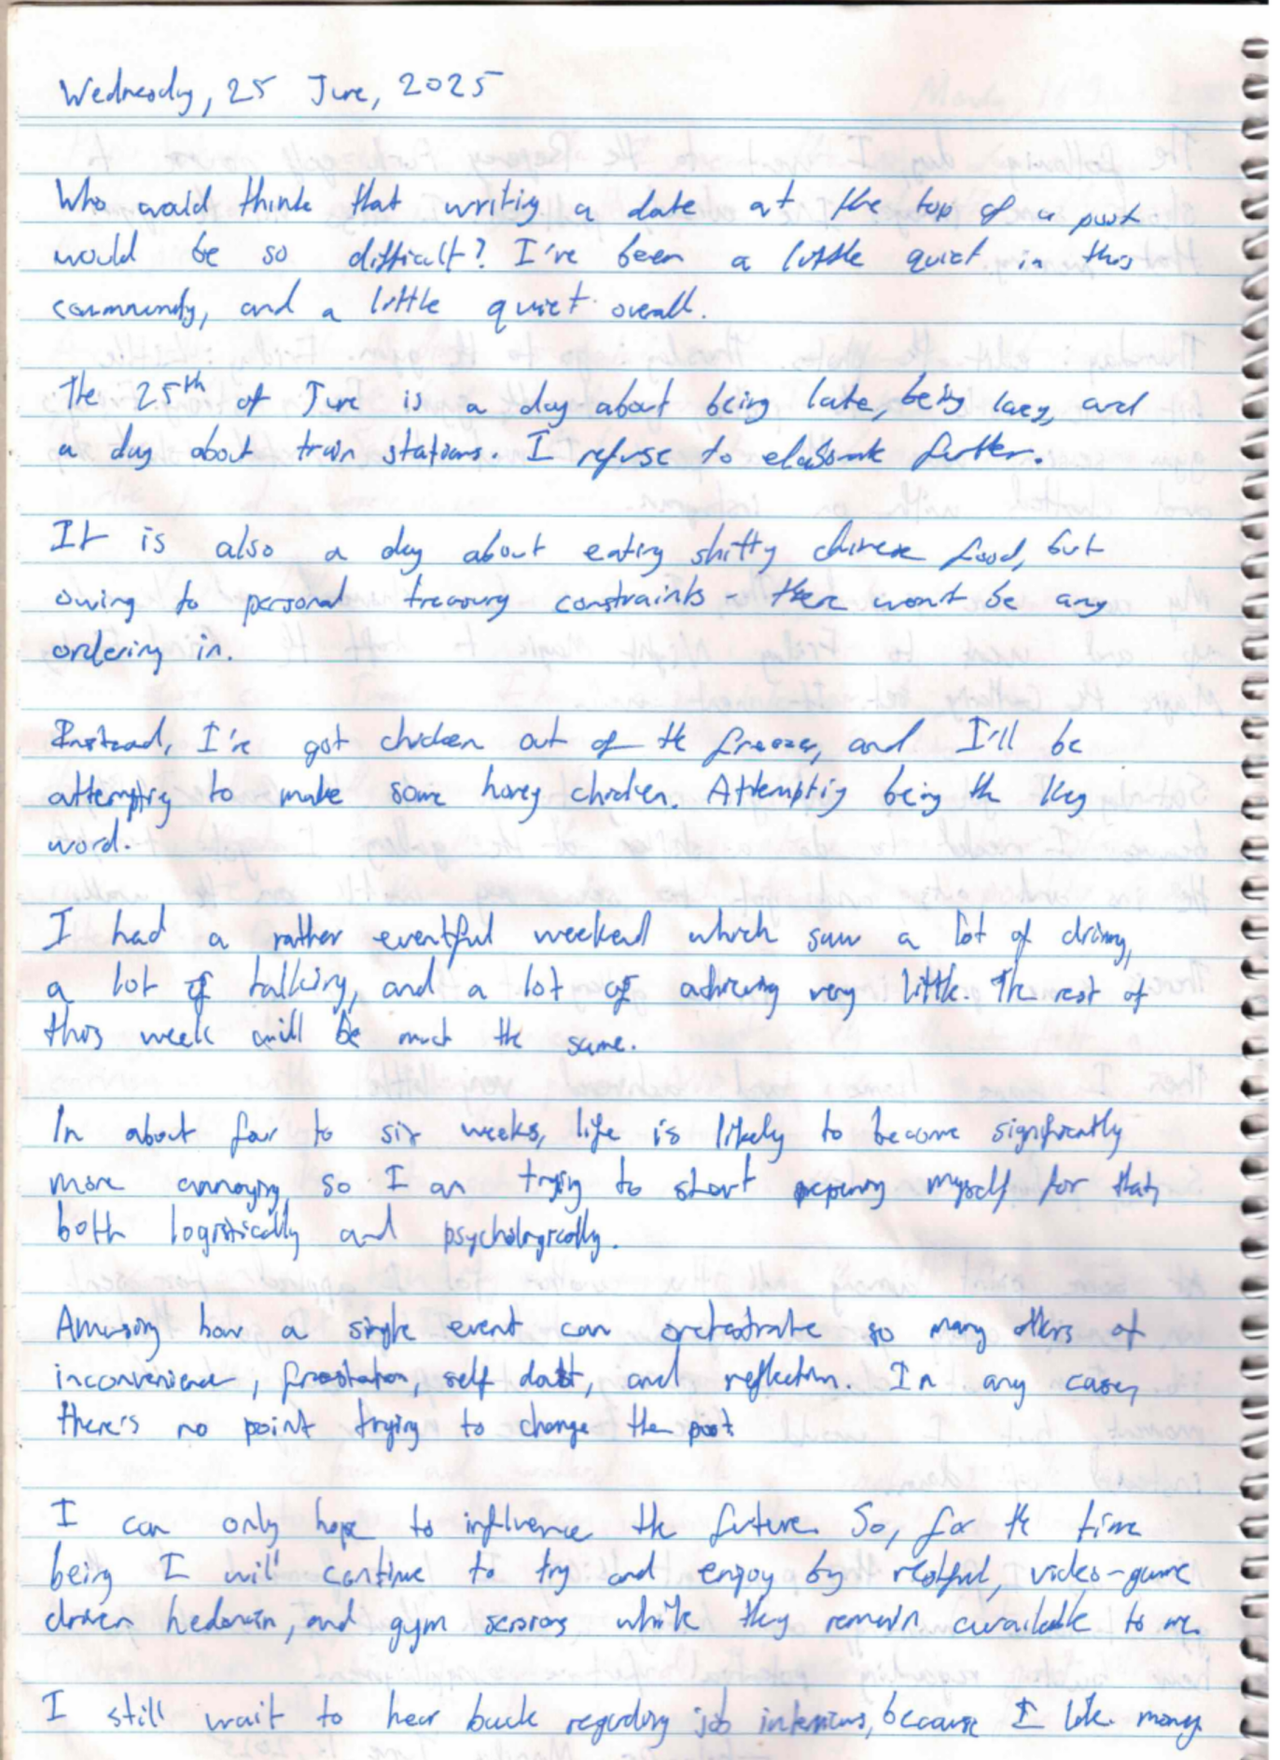 Wednesday, 25 June, 2025
Who would think that writing a date at the top of a post
would be so difficult? I've been a little quiet in this
community, and a little quiet overall.
The 25th of June is a day about being late, being lazy, and
a day about train stations. I refuse to elaborate further.
It is also a day about eating shitty chinese food, but
owing to personal treasury constraints - there won't be any
ordering in.
Instead, I've got chicken out of the freezer, and I'll be
attempting to make some honey chicken. Attempting being the key
word.
I had a rather eventful weekend which saw a lot of driving,
a lot of talking, and a lot of achieving very little. The rest of
this week will be much the same.
In about four to six weeks, life is likely to become significantly
more annoying, so I am trying to start preparing myself for that,
both logistically and psychologically.
Amusing how a single event can orchestrate so many others of
inconvenience, frustration, self doubt, and reflection. In any case,
there's no point trying to change the past.
I can only hope to influence the future. So, for the time
being I will continue to try and enjoy my restful, video-game
driven hedonism, and gym sessions while they remain available to me.
I still wait to hear back regarding job interviews, because I like money.